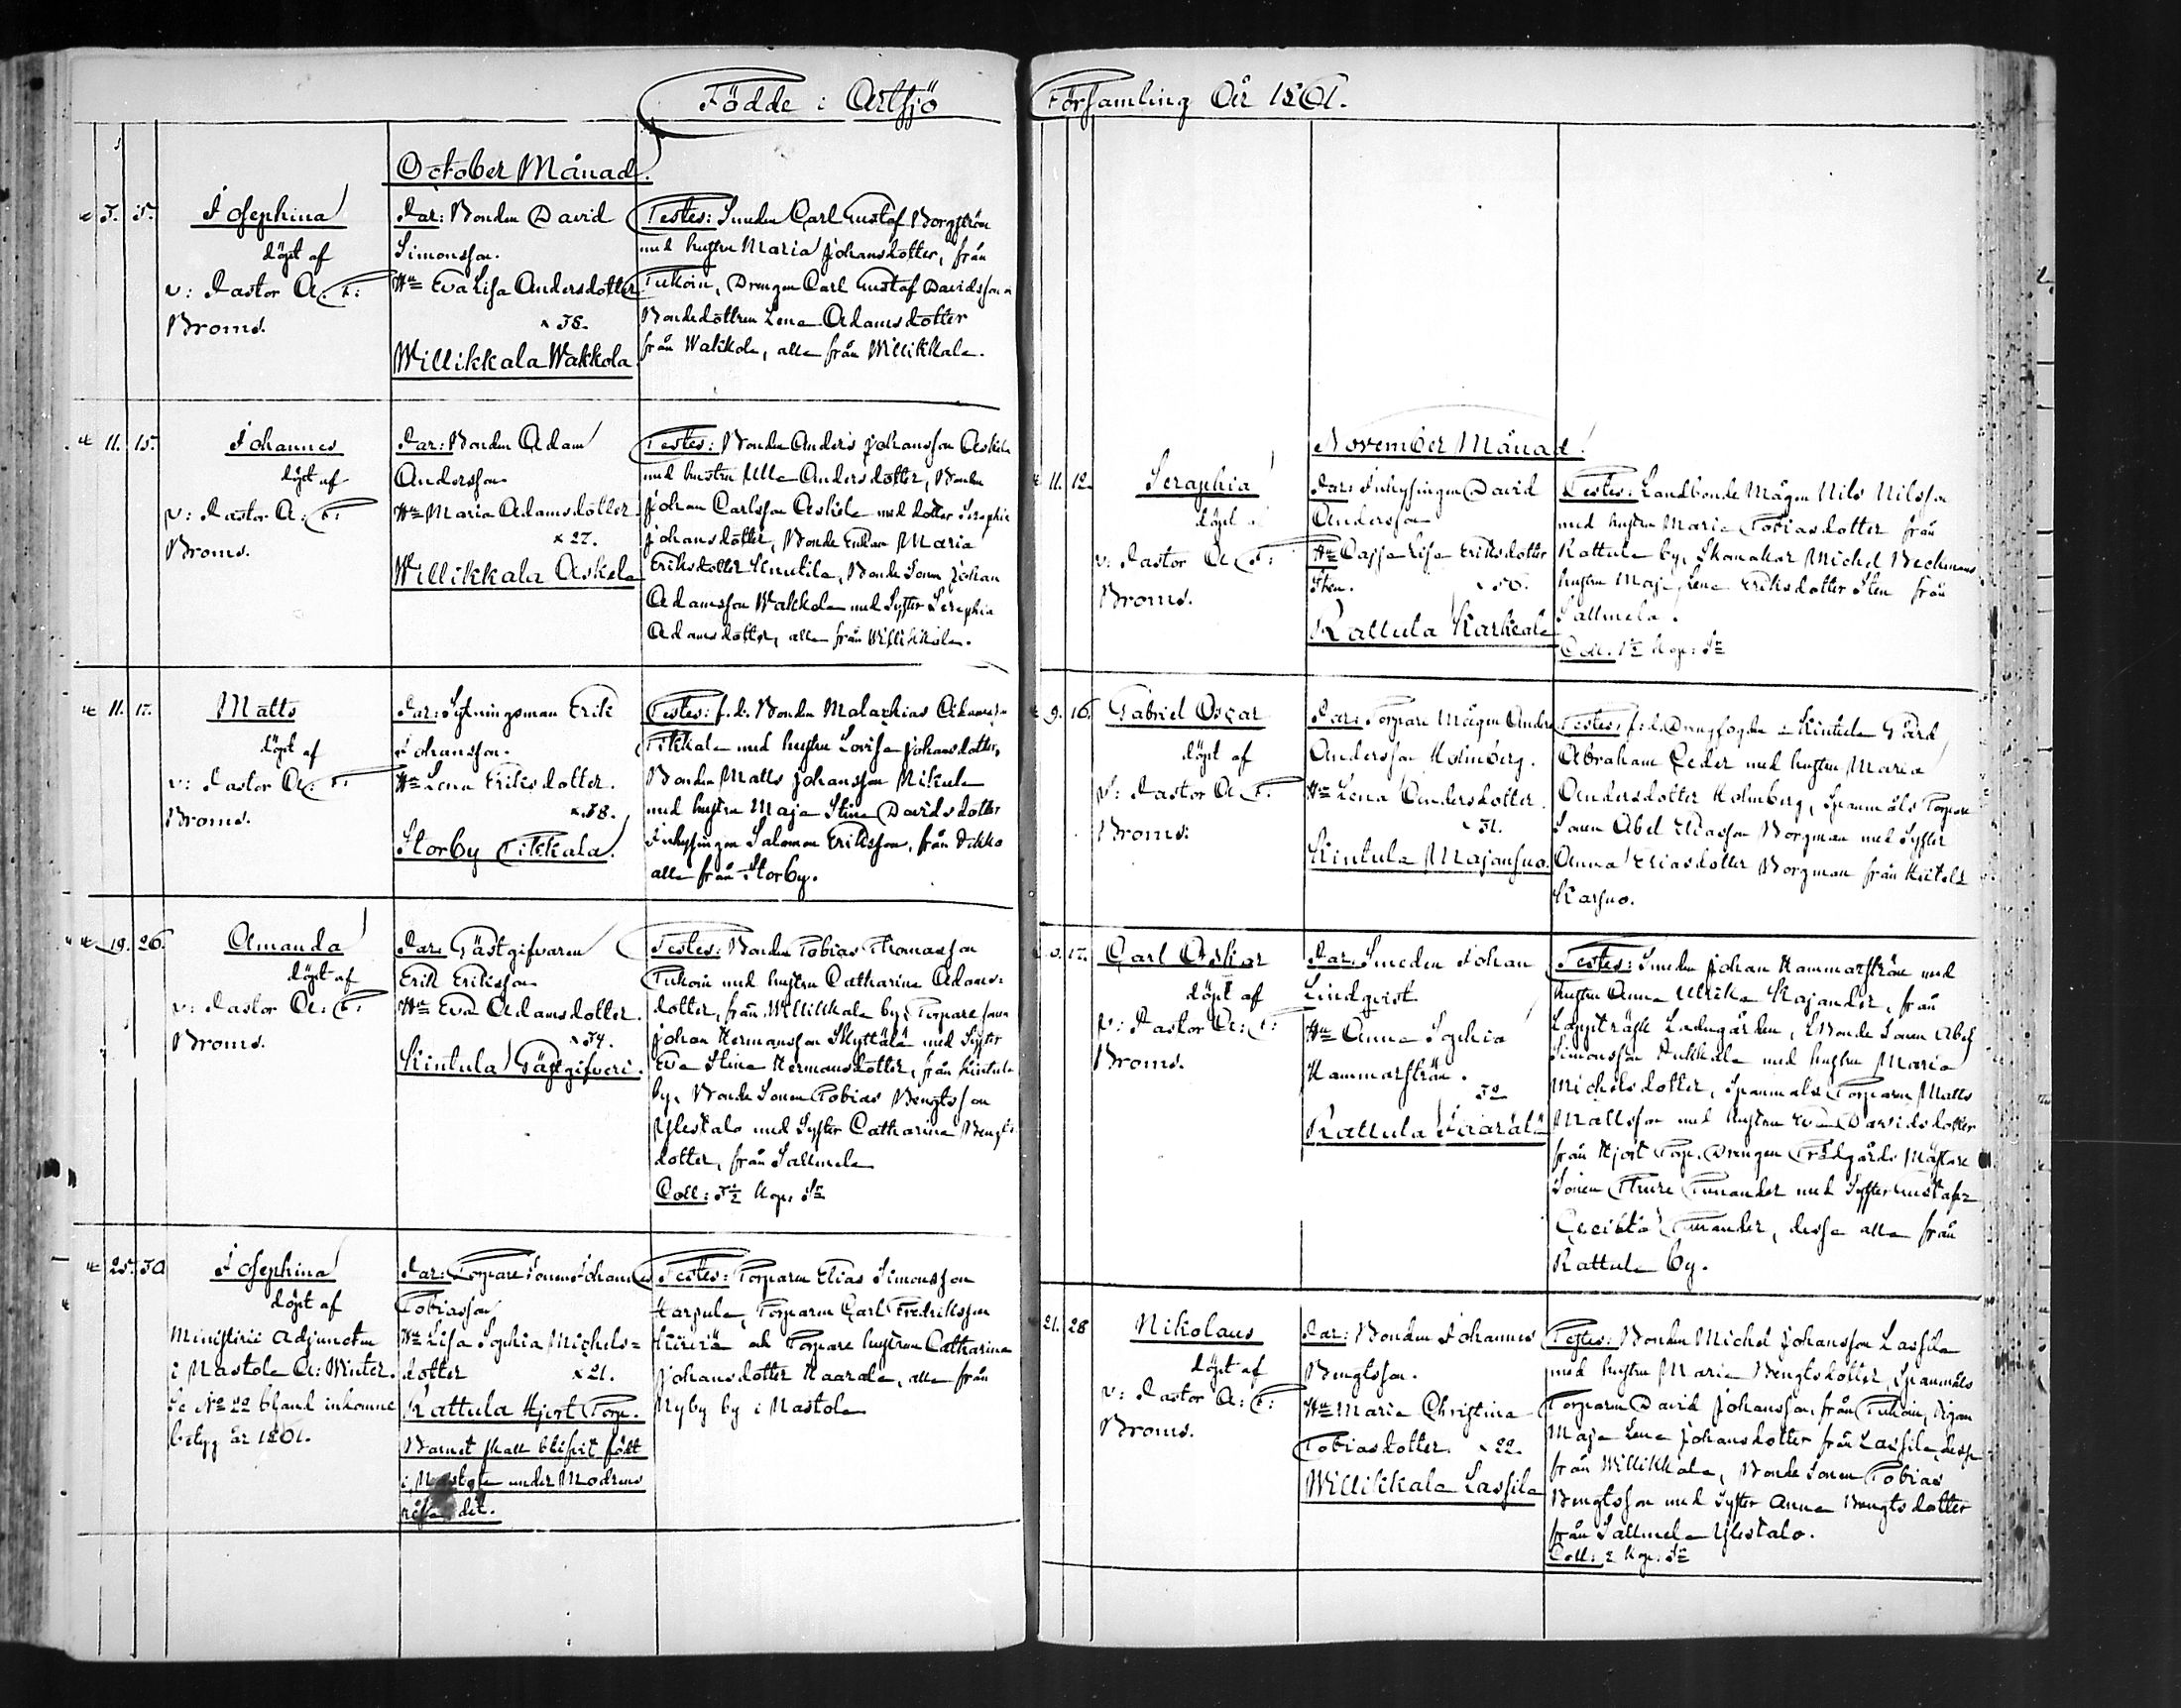 Födde i Artsjö Församling År 1861.
October Månad.
3. 5. Josephina
döpt af
v: Pastor A: F:
Broms.
Far: Bonden David
Simonsson.
Hu Eva Lisa Andersdotter
x 38.
Willikkala Wakkola
Testes: Smeden Carl Gustaf Borgström
med hustru Maria Johansdotter, från
Tukoin, Drengen Carl Gustaf Davidsson o
Bondedottren Lena Adamsdotter
från Wakkola, alla från Willikkala.
11. 15. Johannes
döpt af
v: Pastor A: F:
Broms.
Far: Bonden Adam
Andersson
Hu Maria Adamsdotter
x 27.
Willikkala Askola
Testes: Bonden Anders Johansson Askola
med hustru Ulla Andersdotter, Bonden
Johan Carlsson Askola med dotter Seraphia
Johansdotter, Bonde Enkan Maria
Eriksdotter Knutila, Bonde Sonen Johan
Adamsson Wakkola med Syster Seraphia
Adamsdotter, alla från Willikkala.
11. 17. Matts
döpt af
v: Pastor A: F:
Broms.
Far: Sytningsman Erik
Johansson.
Hu Lena Eriksdotter.
x 38.
Storby Tikkala.
Testes: f.d. Bonden Malachias Adamsson
Tikkala med hustru Lovisa Johansdotter,
Bonden Matts Johansson Nikula
med hustru Maja Stina Davidsdotter
Inhysingen Salomon Eriksson, från Sikko
alla från Storby.
19. 26. Amanda
döpt af
v: Pastor A: F:
Broms.
Far: Gästgifvaren
Erik Eriksson
Hu Eva Adamsdotter.
x 34.
Kintula Gästgifveri.
Testes: Bonden Tobias Thomasson
Tukoin med hustru Catharina Adams-
dotter, från Willikkala by, Torpare sonen
Johan Hermansson Skyttälä med Syster
Eva Stina Hermansdotter, från Kintula
by, Bonde Sonen Tobias Bengtsson
Ylestalo med Syster Catharina Bengts
dotter, från Sallmela
Coll: 3½ kop: Sr
25. 30 Josephina
döpt af
Ministerii Adjuncten
i Nastola A: Winter.
Se No 22 bland inkomne
betyg år 1861.
Far: Torpare Sonen Johannes
Tobiasson
Hu Lisa Sophia Michels=
dotter x 21.
Kattula Hjort Torp.
Barnet skall blifvit födt
i Nastola under Modrens
resa dit.
Testes: Torparen Elias Simonsson
Harjula, Torparen Carl Fredriksson
och Torpare hustrun Catharina
Johansdotter Kaarala, alla från
Nyby by i Nastola
November Månad.
11. 12. Seraphia
döpt af
v: Pastor A: F:
Broms.
Far: Inhysingen David
Andersson
Hu Cajsa Lisa Eriksdotter
Sten. x 30.
Rattula Karkiala
Testes: Landbonde Mågen Nils Nilsson
med hustru Maria Tobiasdotter från
Rattula by, Skomakar Michel Beckmans
hustru Maja Lena Eriksdotter Sten från
Sallmela.
Coll: kop: Sr
9. 16. Gabriel Oscar
döpt af
v: Pastor A: F:
Broms:
Far: Torpare Mågen Anders
Andersson Holmberg.
Hu Lena Andersdotter.
x 31.
Kintula Majansuo.
Testes: f.d. Drengfogden å Kintula Gård
Abraham Ceder med hustru Maria
Andersdotter Holmberg, Spanmåls Torpare
Sonen Abel Eliasson Borgman med Syster
Anna Eliasdotter Borgman från Heitola
Karsuo.
17. Carl Oskar
döpt af
v: Pastor A: F:
Broms.
Far: Smeden Johan
Lindqvist
Hu Anna Sophia
Hammarström.
32
Rattula
Testes: Smeden Johan Hammarström med
hustru Anna Ulrika Kajander, från
Lappträsk Ladugården, Bonde Sonen Abel
Simonsson med hustru Maria
Michelsdotter, Spanmåls Torparen Matts
Mattsson med hustru Eva Davidsdotter
från Hjort Torp. Drengen Trädgårds Mästare
Sonen Thure Tunander med Syster Gustafva
Cecilia Tunander, desse alla från
Rattula by.
21. 28 Nikolaus
döpt af
v: Pastor A: F:
Broms.
Far: Bonden Johannes
Bengtsson.
Hu Maria Christina
Tobiasdotter. x 22.
Willikkala Lassila
Testes: Bonden Michel Johansson Lassila
med hustru Maria Bengtsdotter, Spanmåls
Torparen David Johansson, från Tukoin, Pigan
Maja Lena Johansdotter från Lassila, desse
från Willikkala, Bonde Sonen Tobias
Bengtsson med Syster Anna Bengtsdotter
från Sallmela Ylestalo.
Coll: 2 kop: Sr